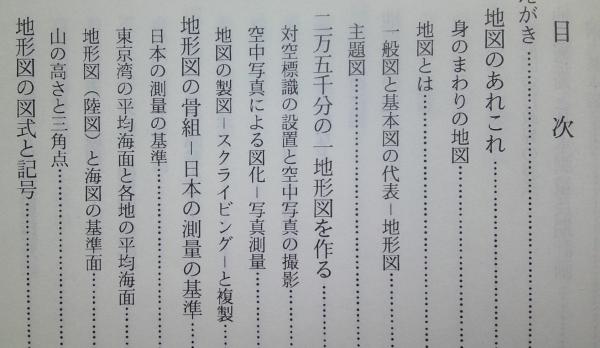 目次
えがき
地図のあれこれ
身のまわりの地図
地図とは
一般図と基本図の代表−地形図
主題図
二万五千分の一地形図を作る
対空標識の設置と空中写真の撮影
空中写真による図化−写真測量
地図の製図−スクライビング−と複製
地形図の骨組−日本の測量の基準
日本の測量の基準
東京湾の平均海面と各地の平均海面
地形図（陸図）と海図の基準面
山の高さと三角点
地形図の図式と記号